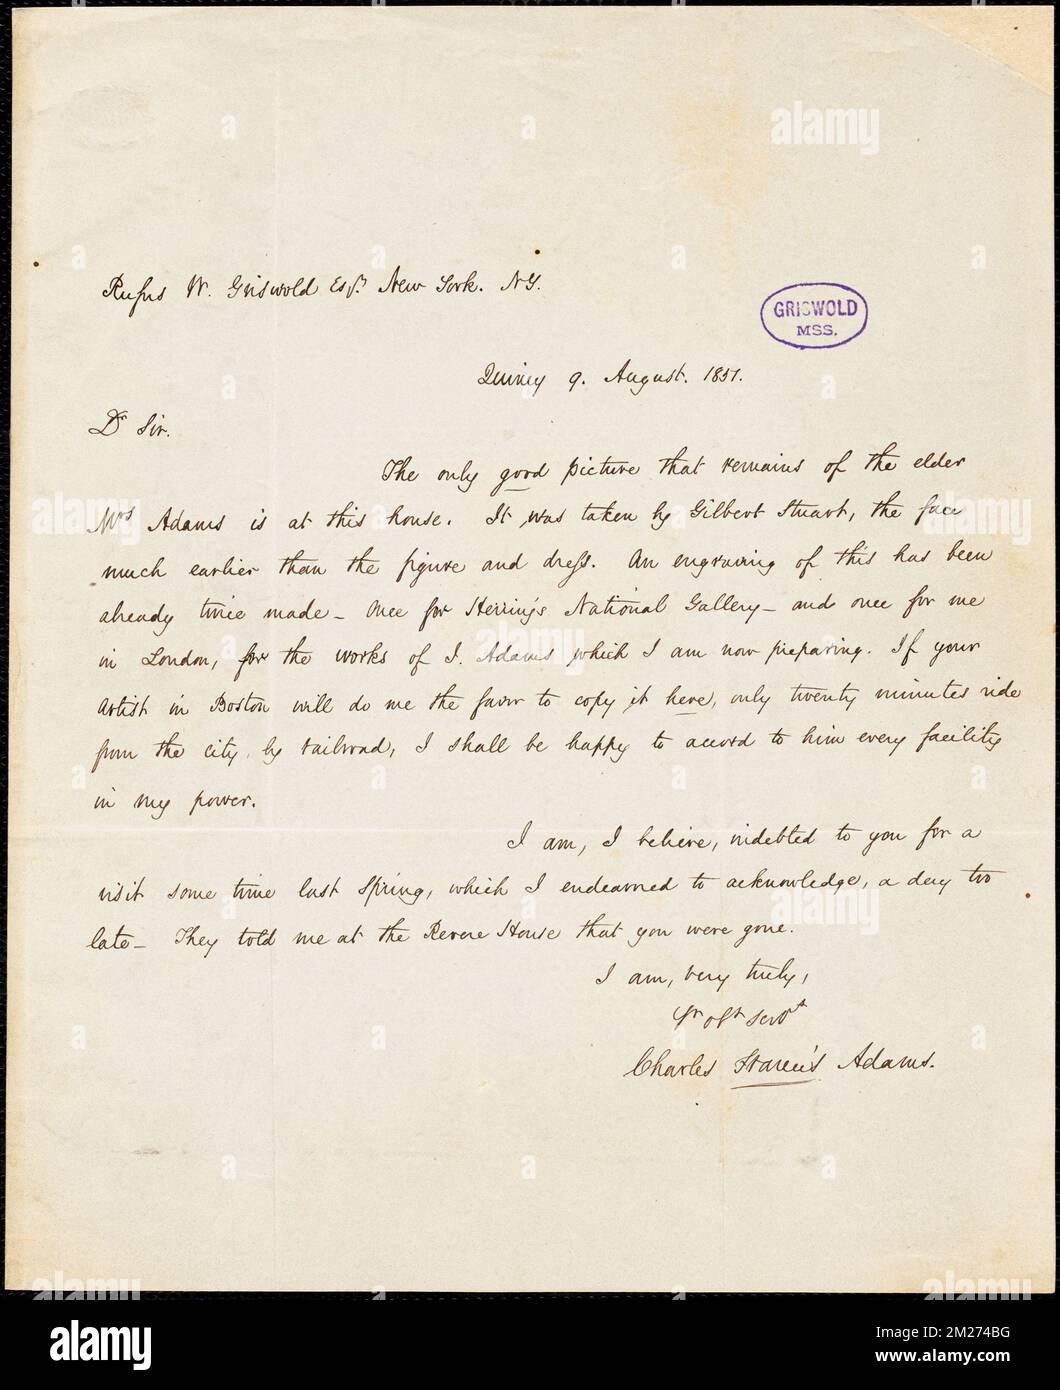 Rufus W. Griswold Esqr. New York. NY.
GRISWOLD
MSS.
Quincy 9. August. 1851.
Dr Sir.
The only good picture that remains of the elder
Mrs Adams is at this house. It was taken by Gilbert Stuart, the face
much earlier than the figure and dress. An engraving of this has been
already twice made – Once for Herring's National Gallery – and once for me
in London, for the works of J. Adams which I am now preparing. If your
artist in Boston will do me the favor to copy it here, only twenty minutes ride
from the city, by railroad, I shall be happy to accord to him every facility
in my power.
I am, I believe, indebted to you for a
visit some time last Spring, which I endeavored to acknowledge, a day too
late – They told me at the Revere House that you were gone.
I am, very truly,
Yr obt servt
Charles Francis Adams.
alamy
Image ID: 2M274BG
www.alamy.com